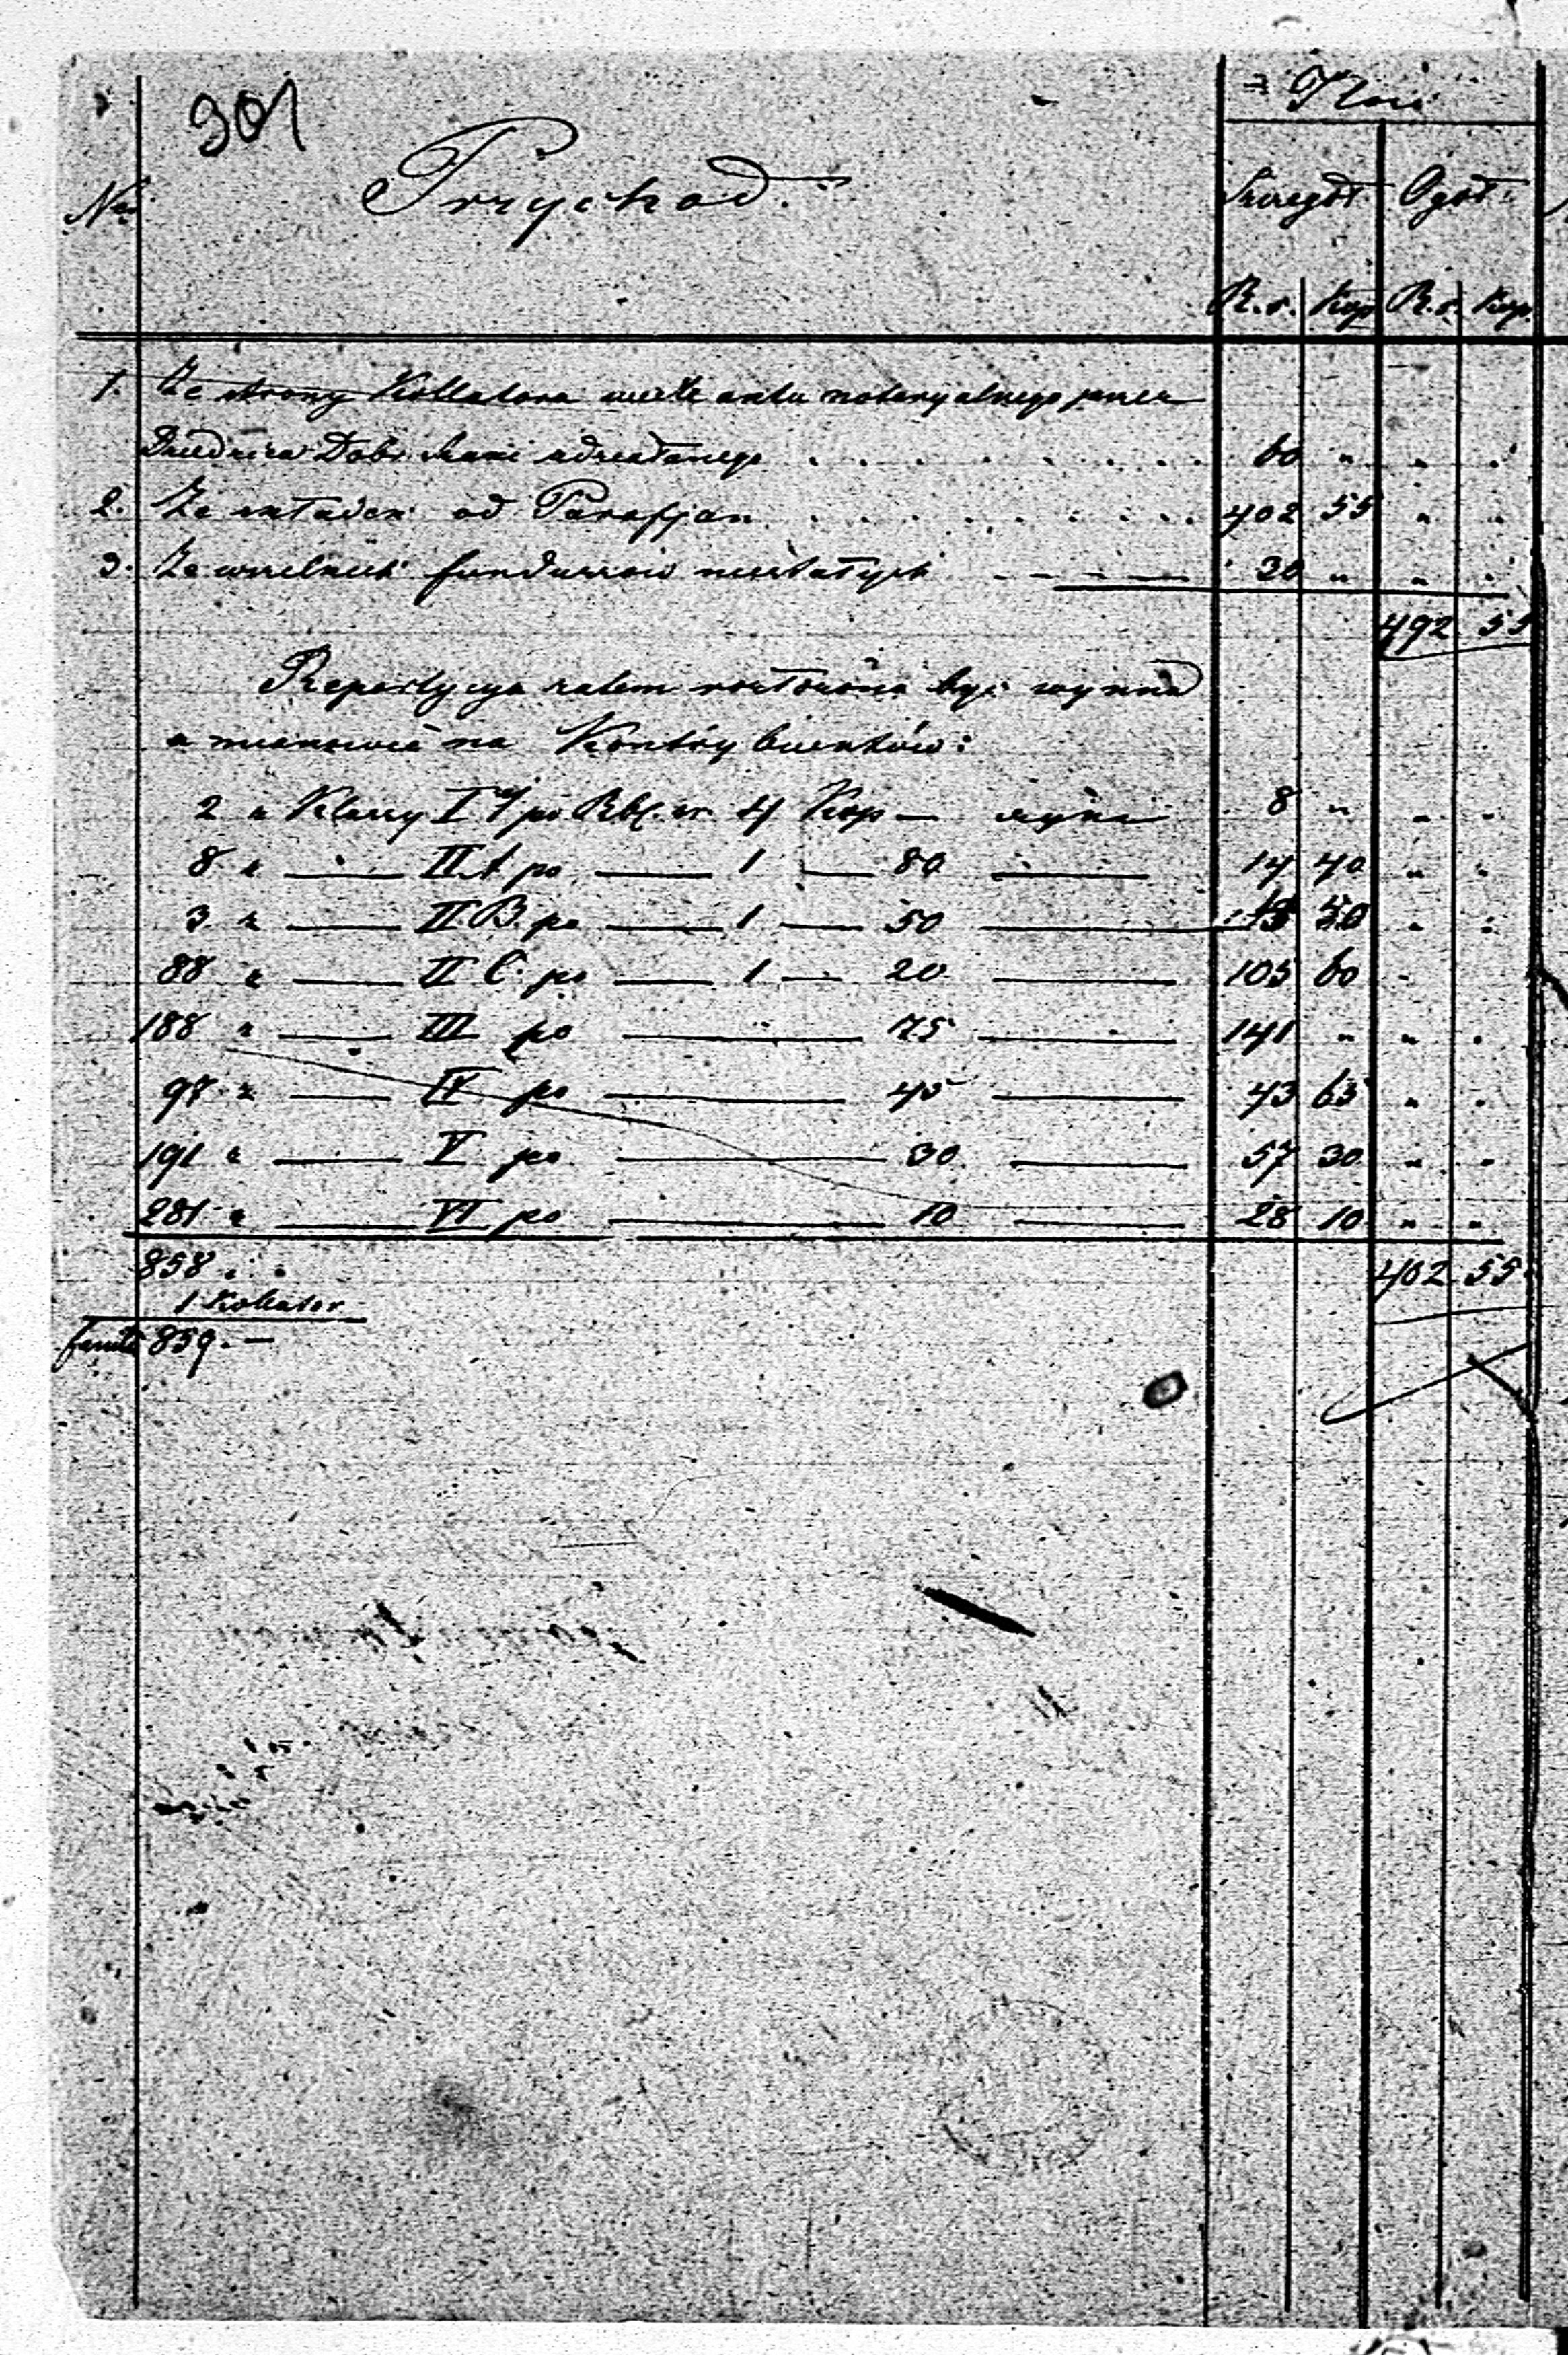 301
Ilość
No Przychód. Szczegół Ogół
R.s. Kop R.s. Kop.
1. Ze strony Kollatora wedle aktu notaryalnego przez
Dziedzica Dóbr zdziałanego . . . . . . . . . 60 " " "
2. Ze składek od Parafjan . . . . . . . . . . 402 55 " "
3. Ze wszelkich funduszów - - - - 30 " " "
492 55
Repartycya zatem rozłożona być wynna
a mianowicie na Kontrybuentów:
2 z Klassy I éj po Rbl. sr. 4 Kop — czyni 8 " " "
8 z — II A po — 1 — 80 — 14 40 " "
3 z — II B. po — 1 — 50 — 4 50 " "
88 z — II C. po — 1 — 20 — 105 60 "
188 " — III po — 75 — 141 " " "
97 z — IV po — 45 — 43 65 " "
191 z — V po — 30 — 57 30 " "
281 z — VI po — 10 — 28 10 " "
858 402 55
1 Kollator
859. —